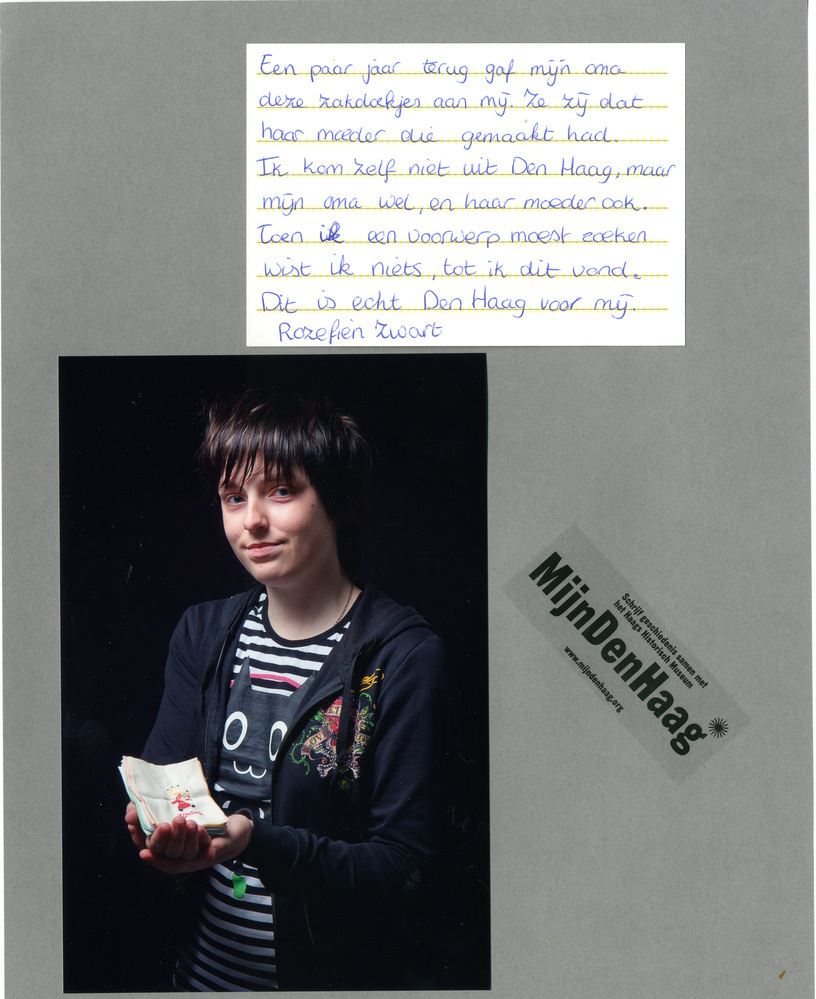 Een paar jaar terug gaf mijn oma
deze zakdoekjes aan mij. Ze zij dat
haar moeder die gemaakt had.
Ik kom zelf niet uit Den Haag, maar
mijn oma wel, en haar moeder ook.
Toen ik een voorwerp moest zoeken
wist ik niets, tot ik dit vond.
Dit is echt Den Haag voor mij.
Rozefien Zwart
Schrijf geschiedenis samen met
het Haags Historisch Museum
MijnDenHaag
www.mijndenhaag.org